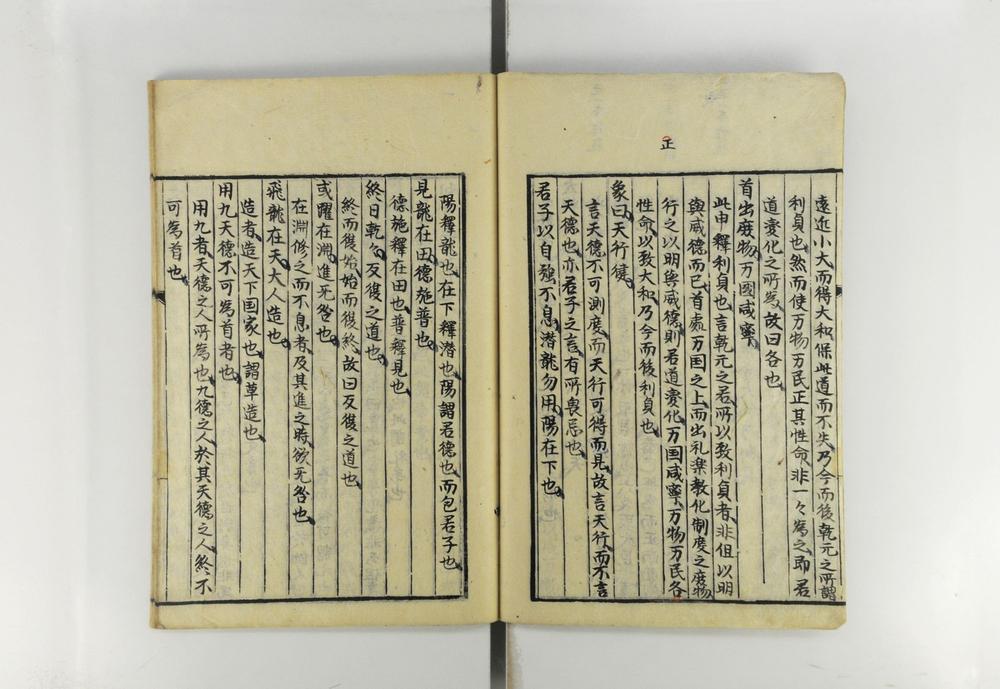 正
遠近小大而得大和保此道而不失乃今而後乾元之所謂
利貞也然而使万物万民正其性命非一々為之即君
道変化之所為故曰各也
首出庶物万国咸寧
此申釋利貞也言乾元之君所以致利貞者非但以明
與威德而已首處万国之上而出礼楽教化制度之庶物
行之以明與威德則君道変化万国咸寧万物万民各
性命以致大和乃今而後利貞也
象曰天行健
言天德不可測度而天行可得而見故言天行而不言
天德也亦君子之言有所畏忌也
君子以自強不息潜龍勿用陽在下也
陽釋龍也在下釋潜也陽謂君德也而包君子也
見龍在田德施普也
德施釋在田也普釋見也
終日乾々反復之道也
終而復始始而復終故曰反復之道也
或躍在淵進无咎也
在淵修之而不息者及其進之時欲无咎也
飛龍在天大人造也
造者造天下国家也謂草造也
用九天德不可為首者也
用九者天德之人所為也九德之人於其天德之人終不
可為首也